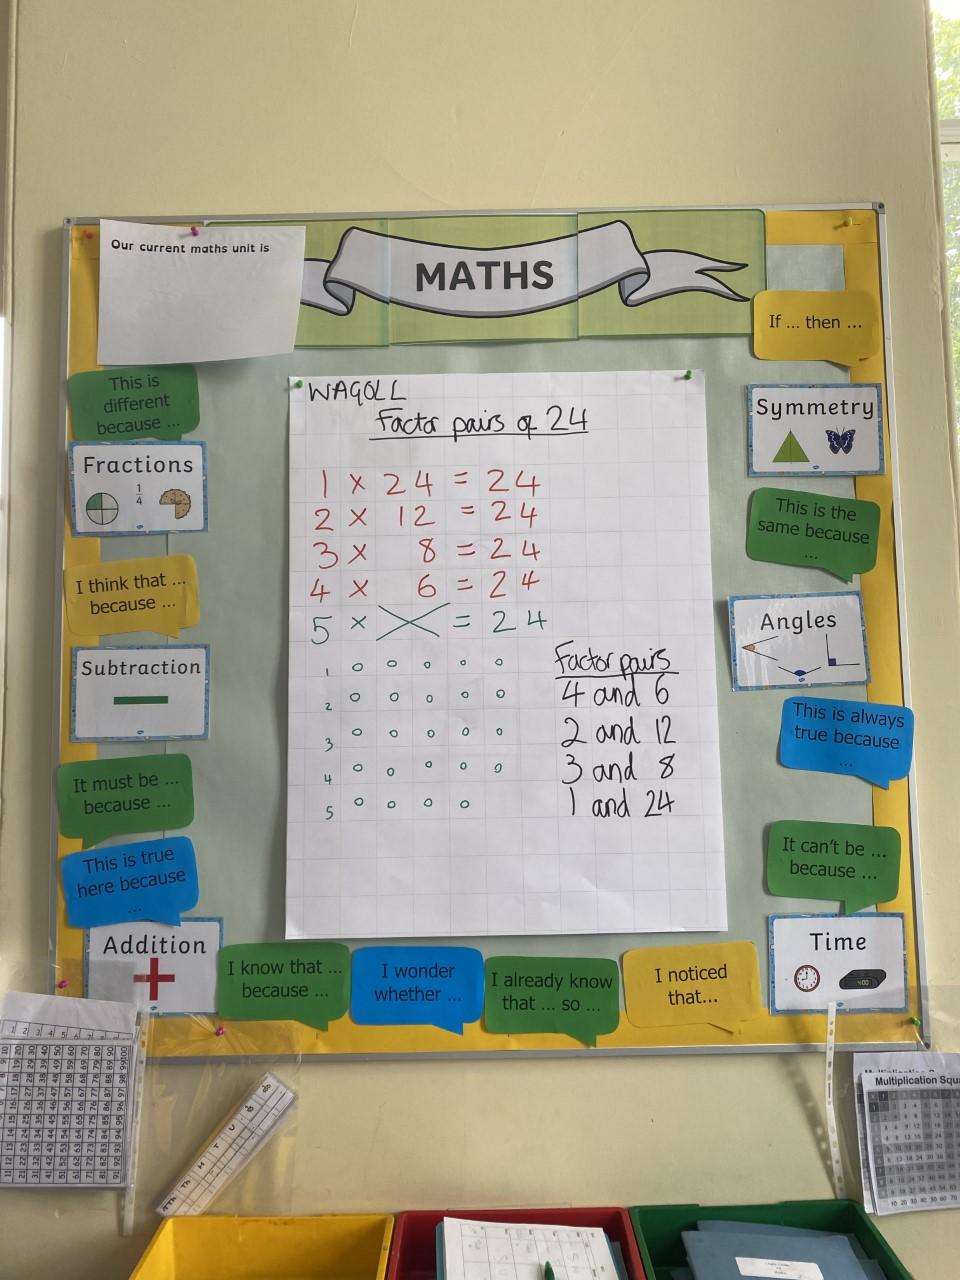 Our current maths unit is
MATHS
If ... then ...
This is
different
because ...
Fractions
1
4
I think that ...
because ...
Subtraction
It must be ...
because ...
This is true
here because
...
Addition
WAGOLL
Factor pairs of 24
1 x 24 = 24
2 x 12 = 24
3 x 8 = 24
4 x 6 = 24
5 x = 24
1
2
3
4
5
Factor pairs
4 and 6
2 and 12
3 and 8
1 and 24
Symmetry
This is the
same because
...
Angles
This is always
true because
...
It can't be ...
because ...
Time
4:00
I know that ...
because ...
I wonder
whether ...
I already know
that ... so ...
I noticed
that...
Multiplication Squa